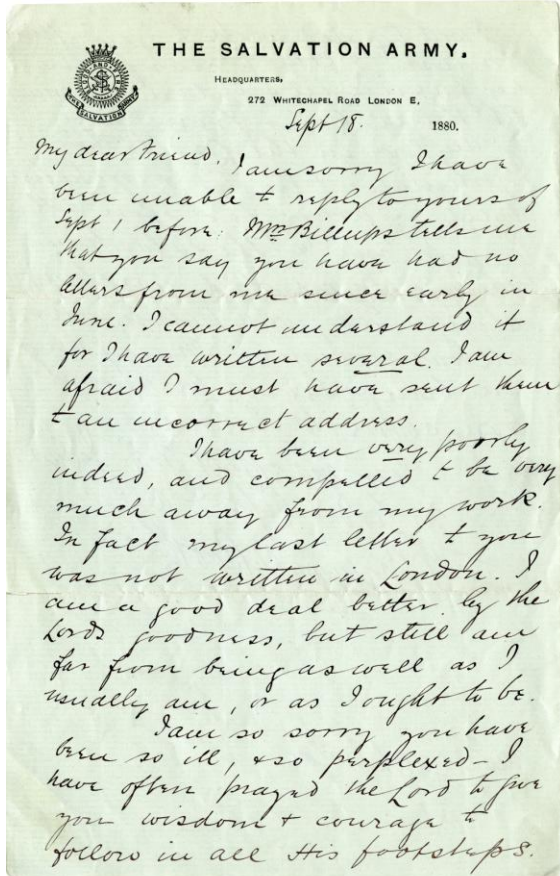 THE SALVATION ARMY.
HEADQUARTERS,
272 WHITECHAPEL ROAD LONDON E,
Sept 18. 1880.
My dear Friend. I am sorry I have
been unable to reply to yours of
Sept 1 before: Mrs Billups tells me
that you say you have had no
letters from me since early in
June. I cannot understand it
for I have written several. I am
afraid I must have sent them
to an incorrect address.
I have been very poorly
indeed, and compelled to be very
much away from my work.
In fact my last letter to you
was not written in London. I
am a good deal better, by the
Lords goodness, but still am
far from being as well as I
usually am, or as I ought to be.
I am so sorry you have
been so ill, & so perplexed - I
have often prayed the Lord to give
you wisdom & courage to
follow in all His footsteps.